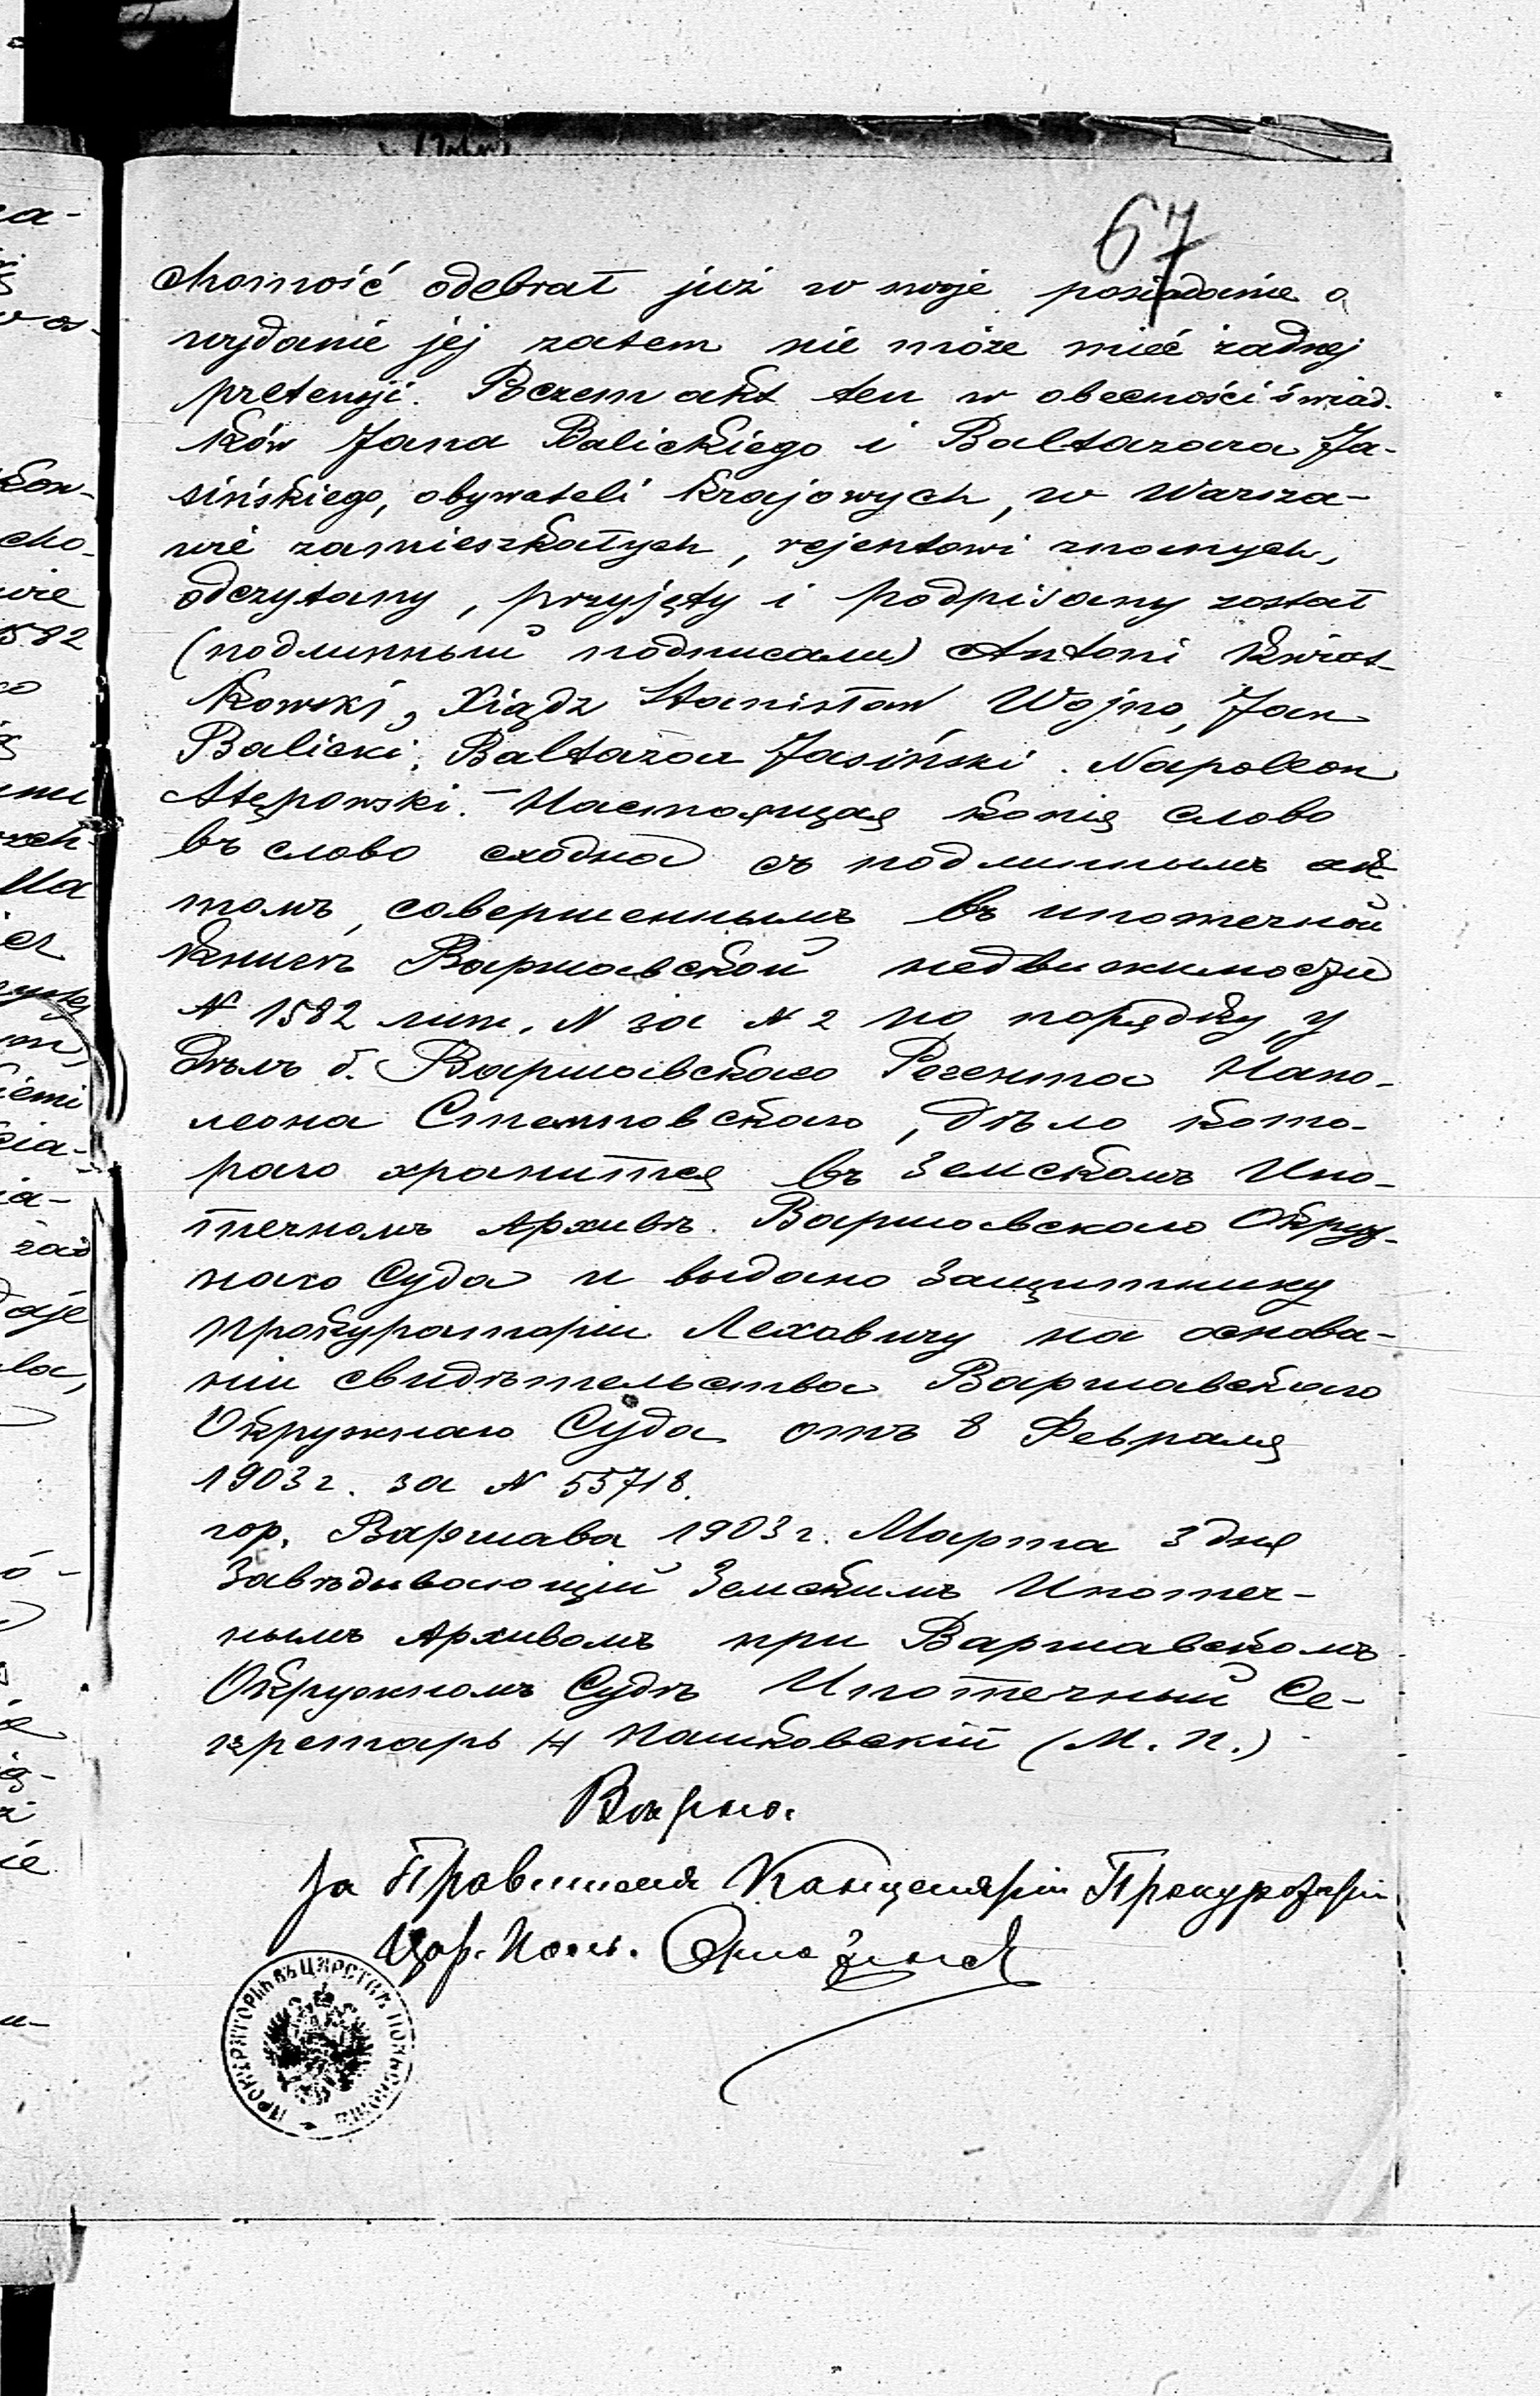 67
chomość odebrał już w swoje posiadanie o
wydanie jej zatem nie może mieć żadnej
pretensji. Poczem akt ten w obecności świad-
ków Jana Balickiego i Baltazara Ja-
sińskiego, obywateli krajowych, w Warsza-
wie zamieszkałych, rejentowi znanych,
odczytany, przyjęty i podpisany został
(подлинный подписали) Antoni Kwiat-
kowski, Xiądz Stanisław Wojno, Jan
Balicki, Baltazar Jasiński. Napoleon
Stępowski. – Настоящая копія слово
въ слово сходна съ подлиннымъ ак-
томъ, совершеннымъ въ ипотечной
книгѣ Варшавской недвижимости
№ 1582 лит. N за № 2 по порядку, у
дѣлъ б. Варшавскаго Регента Напо-
леона Стемповскаго, дѣло кото-
раго хранится въ Земскомъ Ипо-
течномъ Архивѣ Варшавскаго Окруж-
наго Суда и выдано Защитнику
Прокураторіи Леховичу на основа-
ніи свидѣтельства Варшавскаго
Окружнаго Суда отъ 8 Февраля
1903 г. за № 55718.
гор. Варшава 1903 г. Марта 3 дня
Завѣдывающій Земскимъ Ипотеч-
нымъ Архивомъ при Варшавскомъ
Окружномъ Судѣ Ипотечный Се-
кретарь Н Пашковскій (М. П.)
Вѣрно.
За Правителя Канцеляріи Прокураторіи
Цар. Поль.
ПРОКУРАТОРІЯ ВЪ ЦАРСТВѢ ПОЛЬСКОМЪ